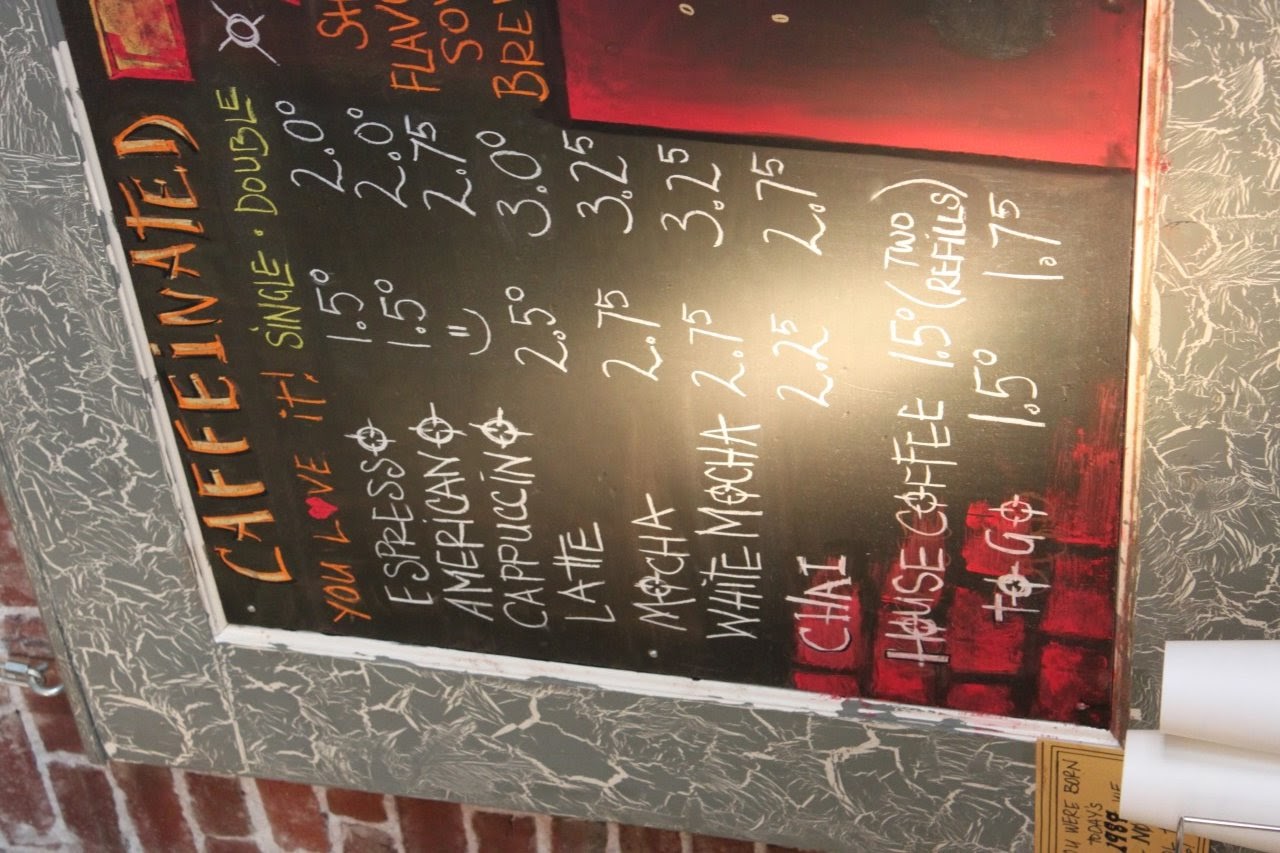 CAFFEiNATED
YOU LOVE it! SiNGLE · DOUBLE
ESPRESSO 1.50 2.00
AMERICANO 1.50 2.00
CAPPUCCINO =) 2.75
LATTE 2.50 3.00
MOCHA 2.75 3.25
WHITE MOCHA 2.75 3.25
CHAI 2.25 2.75
HOUSE COFFEE 1.50 (TWO
REFILLS)
TO GO 1.50 1.75
SH
FLAV
SO
BRE
OU WERE BORN
TODAY'S
1989 WE